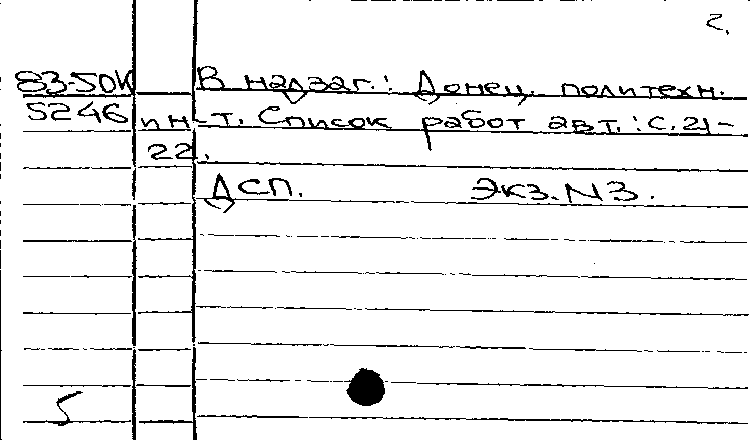 2.
83-50К В надзаг.: Донец. политехн.
5246 ин-т. Список работ авт.: с. 21-
22.
ДСП. Экз. N3.
5